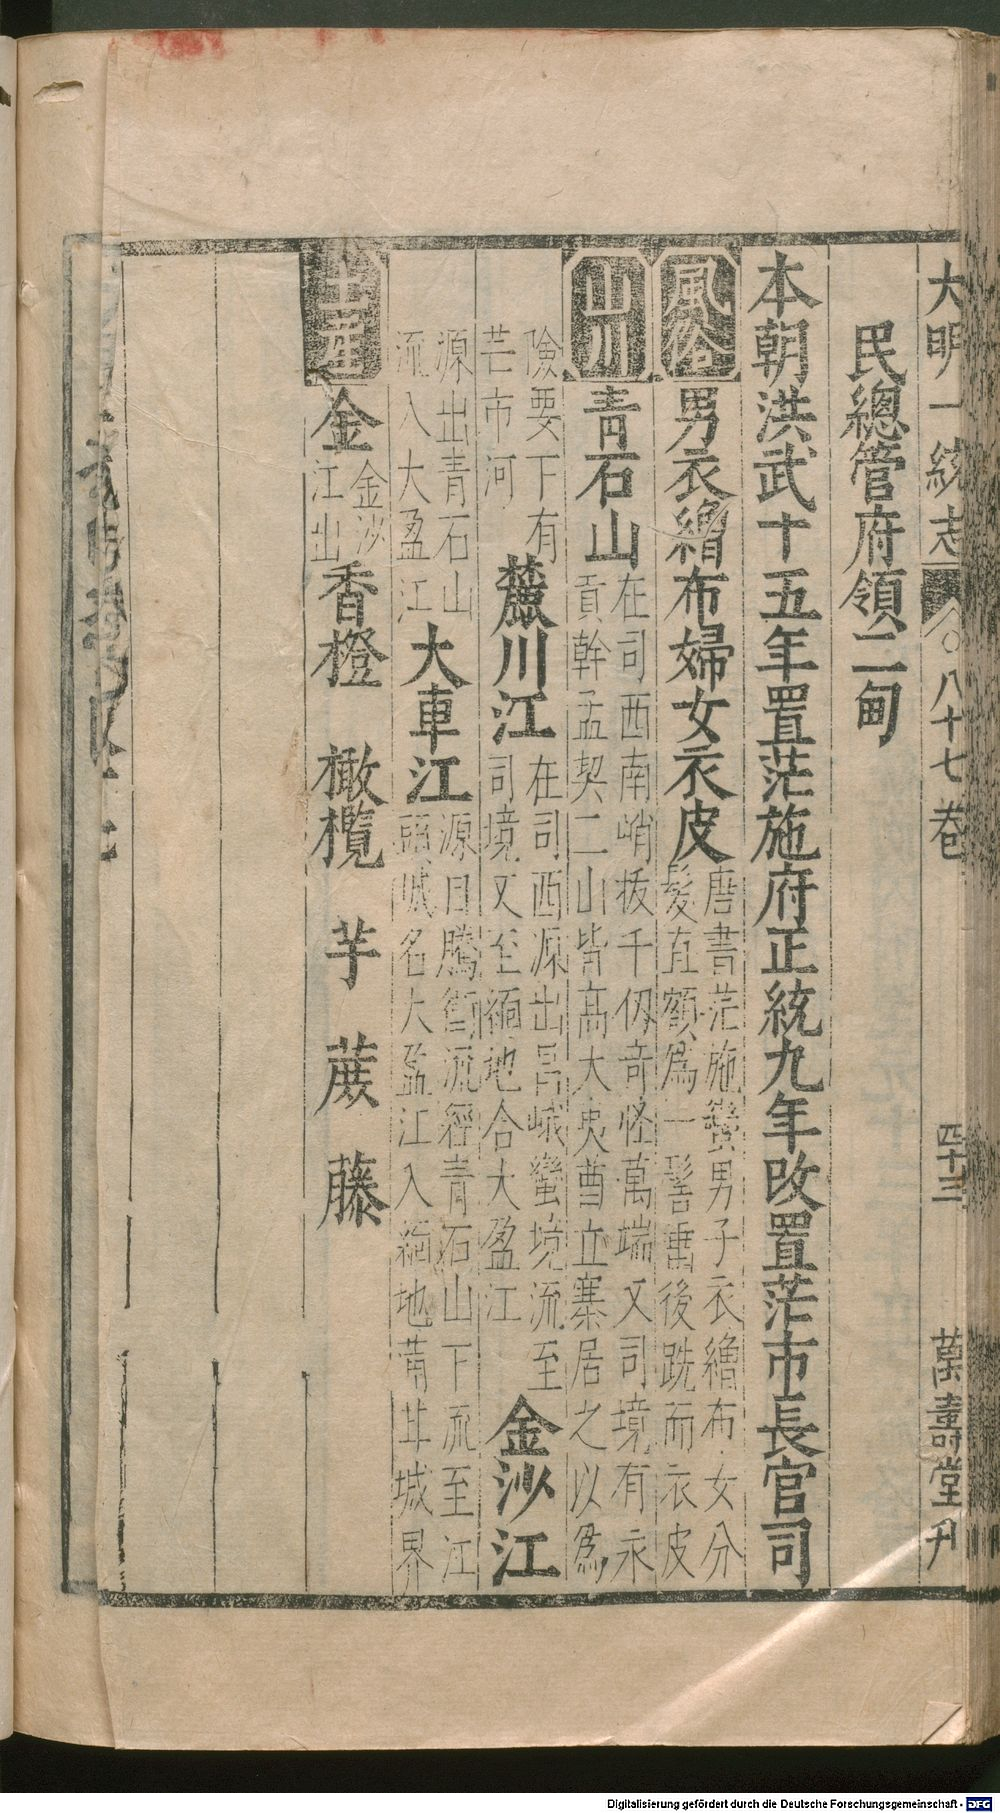 大明一統志 八十七卷 四十三 萬壽堂刊
民總管府領二甸
本朝洪武十五年置茫施府正統九年改置茫市長官司
風俗 男衣繒布婦女衣皮 唐書茫施蠻男子衣繒布女分
髮直額爲一髻垂後跣而衣皮
山川 青石山 在司西南峭拔千仞竒怪萬端又司境有永
貢幹孟契二山皆高大夷酋立寨居之以爲
險要下有
芒市河 麓川江 在司西源出昌峨蠻境流至
司境又至緬地合大盈江 金沙江
源出青石山
流入大盈江 大車江 源自騰衝流經青石山下流至江
頭城名大盈江入緬地蒲甘城界
土産 金 金沙
江出 香橙 橄欖 芋 蔗 藤
Digitalisierung gefördert durch die Deutsche Forschungsgemeinschaft - DFG